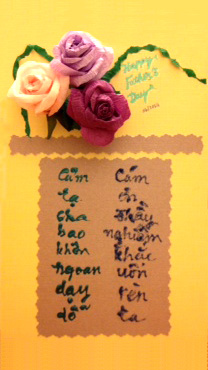 Happy
Father's
Day
Cảm
tạ
cha
bao
khôn
ngoan
dạy
dỗ
Cám
ơn
thầy
nghiêm
khắc
uốn
rèn
ta